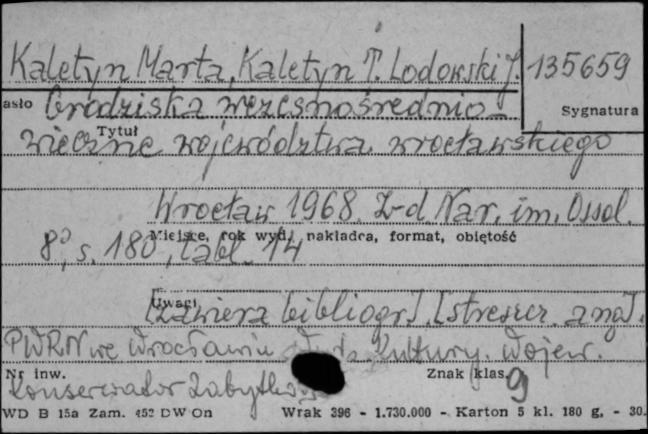 Kaletyn Marta, Kaletyn T. Lodowski J. 135659
asło Grodziska wczesnośrednio- Sygnatura
Tytuł
wieczne województwa wrocławskiego
Wrocław 1968. Z-d Nar. im. Ossol.
Miejsce, rok wyd., nakładca, format, objętość
8°, s. 180, tabl. 14
Uwagi
[zawiera bibliogr]. [streszcz. ang].
PWRN we Wrocławiu Kultury. Wojew.
Nr inw. Znak klas. 9
Konserwator Zabytków
WD B 15a Zam. 452 DW On Wrak 396 - 1.730.000 - Karton 5 kl. 180 g. - 30.